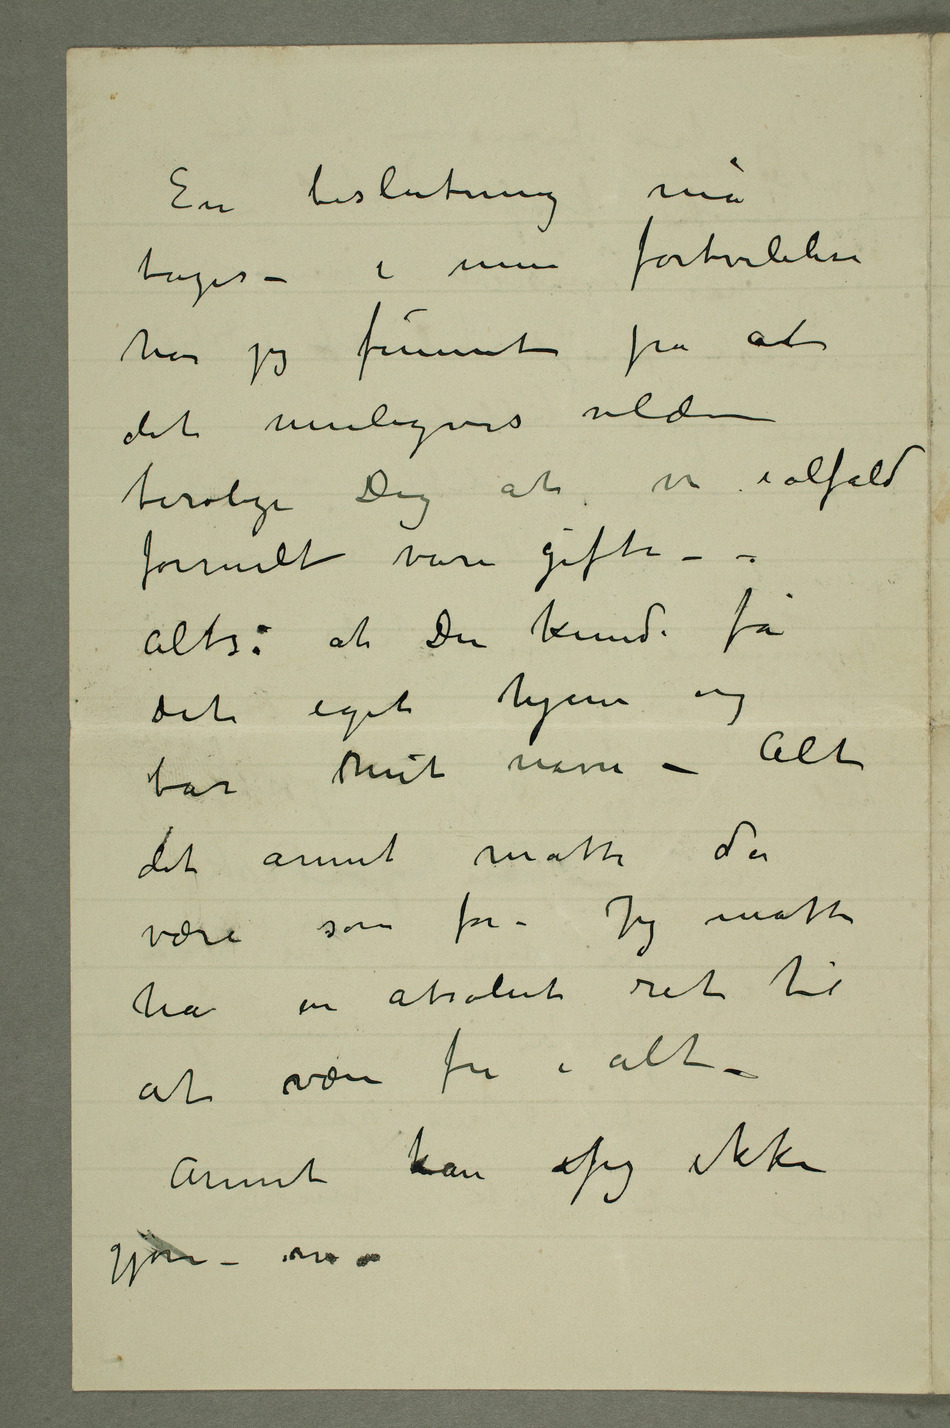 En beslutning må
tages – i min fortvilelse
har jeg funnet på at
det muligvis vilde
berolige Dig at vi ialfald
formelt vare gifte – –
Altså at Du kunde få
dit eget hjem og
bar mit navn – Alt
det annet måtte da
være som før – Jeg måtte
ha en absolut ret til
at være fri i alt –
Annet kan jeg ikke
gjøre –